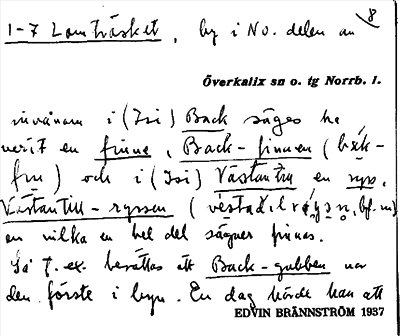 8
1-7 Lomträsket, by i NO. delen av
Överkalix sn o. tg Norrb. l.
invånarn i (Isi) Back säges ha
verit en finne, Back-finnen (
) och i (Isi) Västantill en rys,
Västantill-ryssen (
en vilka en hel del sägner finnas.
Så t.ex. berättas att Back-gubben var
den förste i byn. En dag hörde han att
EDVIN BRÄNNSTRÖM 1937